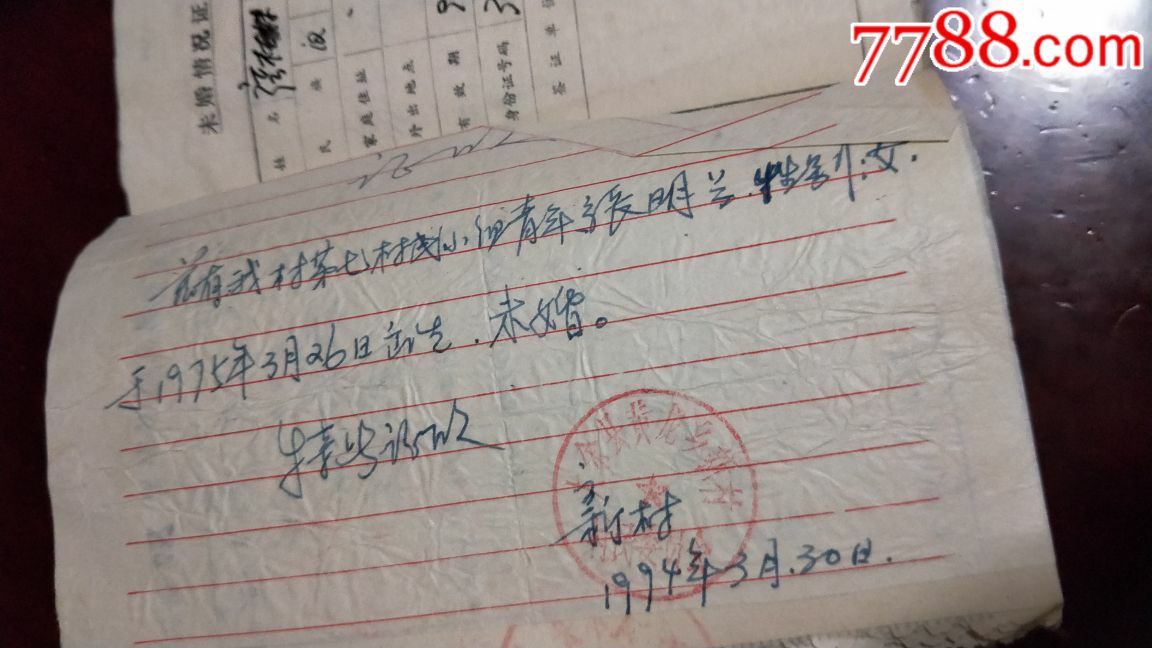 7788.com
未婚情况证
姓名
民族 汉
家庭住址
外出地点
有效期 9
身份证号码 3
签证单位
证明
兹有我村第七村民小组青年张明兰.性别:女.
于1975年3月26日出生.未婚。
特此证明
新村
1994年3月.30日.